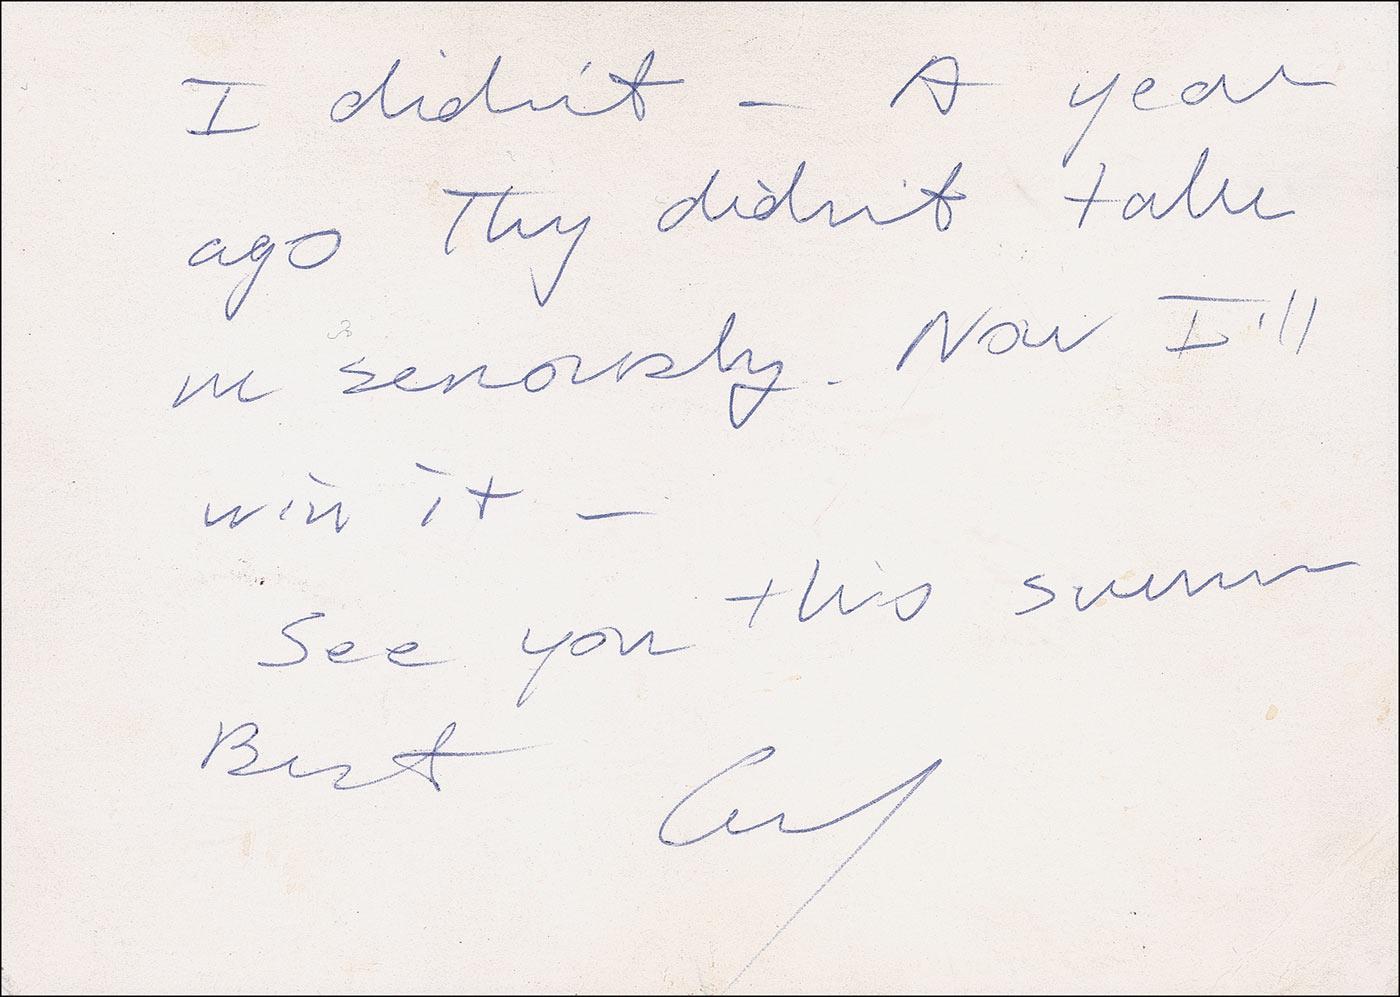 I didn't – A year
ago They didn't take
me seriously. Now I'll
win it –
See you this summer
Best